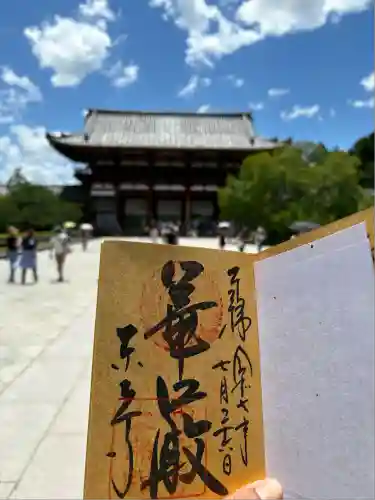 奉拝
令和七年
七月二十六日
華厳
東大寺